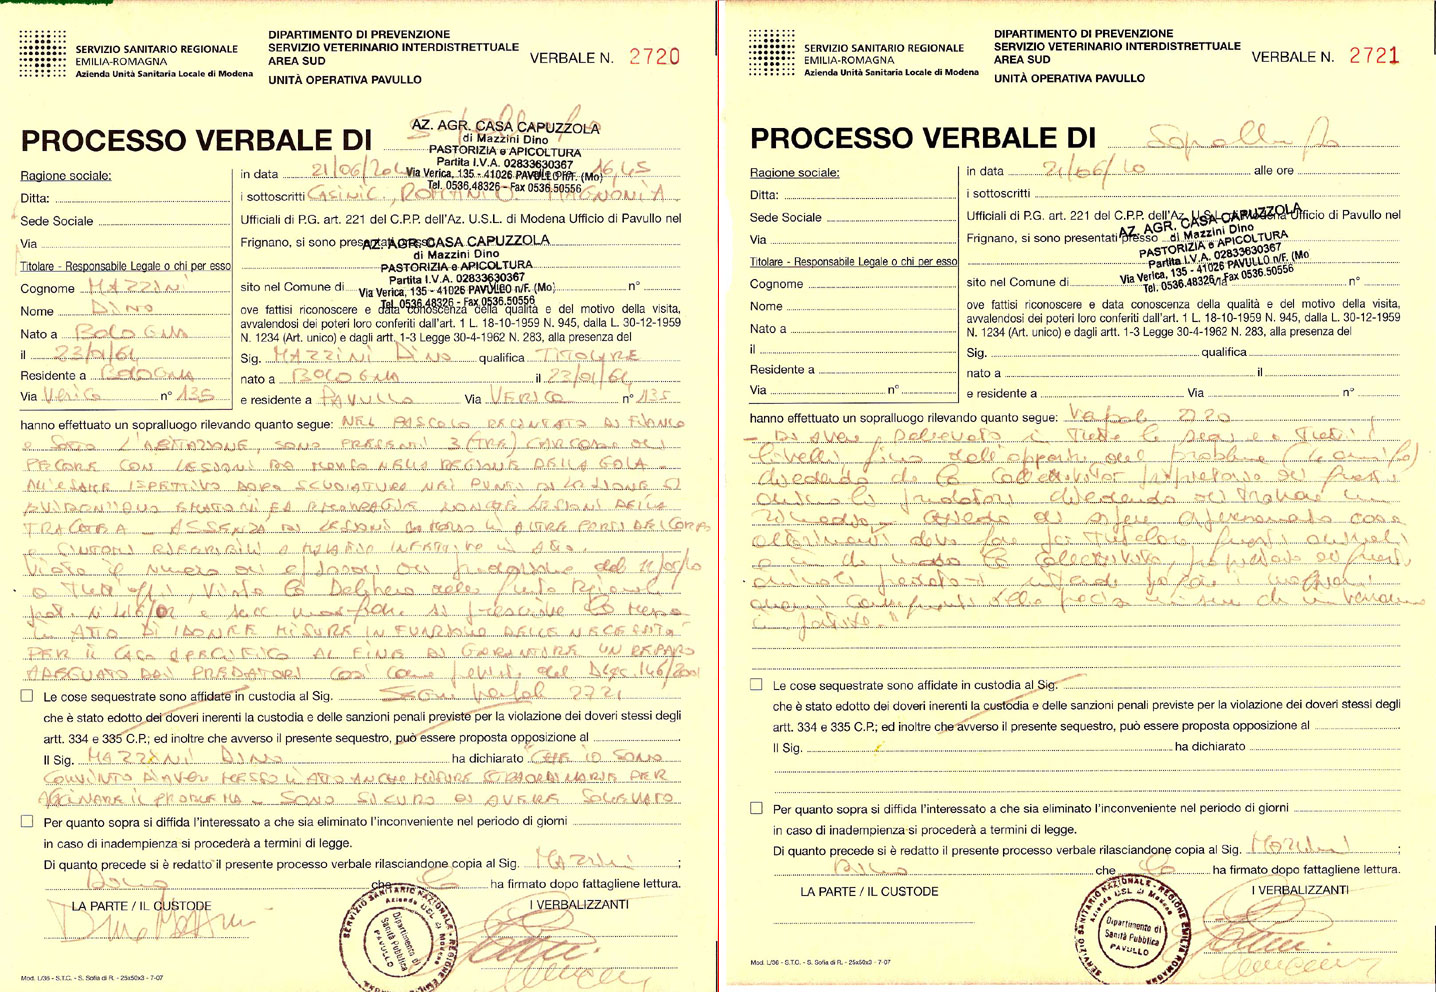 SERVIZIO SANITARIO REGIONALE
EMILIA-ROMAGNA
Azienda Unità Sanitaria Locale di Modena
DIPARTIMENTO DI PREVENZIONE
SERVIZIO VETERINARIO INTERDISTRETTUALE
AREA SUD
UNITÀ OPERATIVA PAVULLO
VERBALE N. 2720
PROCESSO VERBALE DI
AZ. AGR. CASA CAPUZZOLA
di Mazzini Dino
PASTORIZIA e APICOLTURA
Partita I.V.A. 02833630367
Via Verica, 135 - 41026 PAVULLO n/F. (Mo)
Tel. 0536.48326 - Fax 0536.50556
Ragione sociale:
Ditta:
Sede Sociale
Via
Titolare - Responsabile Legale o chi per esso
Cognome MAZZINI
Nome DINO
Nato a BOLOGNA
il 23/01/61
Residente a BOLOGNA
Via Verica n° 135
in data 21/06/ 16,45
i sottoscritti CASINI C., ROMANI O. MAGNONI A
Ufficiali di P.G. art. 221 del C.P.P. dell'Az. U.S.L. di Modena Ufficio di Pavullo nel
Frignano, si sono presentati presso
AZ. AGR. CASA CAPUZZOLA
di Mazzini Dino
PASTORIZIA e APICOLTURA
Partita I.V.A. 02833630367
Via Verica, 135 - 41026 PAVULLO n/F. (Mo)
Tel. 0536.48326 - Fax 0536.50556
sito nel Comune di n°
ove fattisi riconoscere e data conoscenza della qualità e del motivo della visita,
avvalendosi dei poteri loro conferiti dall'art. 1 L. 18-10-1959 N. 945, dalla L. 30-12-1959
N. 1234 (Art. unico) e dagli artt. 1-3 Legge 30-4-1962 N. 283, alla presenza del
Sig. MAZZINI DINO qualifica TITOLARE
nato a BOLOGNA il 23/01/61
e residente a PAVULLO Via VERICA n° 135
hanno effettuato un sopralluogo rilevando quanto segue: NEL PASCOLO RECINTATO DI FIANCO
E SOTTO L'ABITAZIONE, SONO PRESENTI 3 (TRE) CARCASSE DI
PECORE CON LESIONI DA MORSO NELLA REGIONE DELLA GOLA -
ALL'ESAME ISPETTIVO DOPO SCUOIATURA NEI PUNTI DI LESIONE SI
EVIDENZIANO EMATOMI ED EMORRAGIE NONCHÉ LESIONI DELLA
TRACHEA - ASSENZA DI LESIONI DA MORSO IN ALTRE PARTI DEL CORPO
E SINTOMI RIFERIBILI A MALATTIE INFETTIVE IN ATTO.
Visto il numero di di predazione dal
a tutt'oggi, Vista la Delibera della Giunta Regionale
e succ. modifiche si prescrive la messa
IN ATTO DI IDONEE MISURE IN FUNZIONE DELLE NECESSITÀ
PER IL CASO SPECIFICO AL FINE DI GARANTIRE UN RIPARO
ADEGUATO DAI PREDATORI COSÌ COME previsto dal D.lgs. 146/2001
Le cose sequestrate sono affidate in custodia al Sig. Segue verbale 2721
che è stato edotto dei doveri inerenti la custodia e delle sanzioni penali previste per la violazione dei doveri stessi degli
artt. 334 e 335 C.P.; ed inoltre che avverso il presente sequestro, può essere proposta opposizione al
Il Sig. MAZZINI DINO ha dichiarato "CHE IO SONO
CONVINTO D'AVER MESSO IN ATTO ANCHE MISURE STRAORDINARIE PER
ARGINARE IL PROBLEMA - SONO SICURO DI AVERE SOLLEVATO
Per quanto sopra si diffida l'interessato a che sia eliminato l'inconveniente nel periodo di giorni
in caso di inadempienza si procederà a termini di legge.
Di quanto precede si è redatto il presente processo verbale rilasciandone copia al Sig. MAZZINI ;
Dino che ha firmato dopo fattagliene lettura.
LA PARTE / IL CUSTODE
I VERBALIZZANTI
Dino Mazzini
SERVIZIO SANITARIO NAZIONALE - REGIONE EMILIA ROMAGNA
Azienda USL di Modena
Dipartimento di
Sanità Pubblica
PAVULLO
Mod. L/36 - S.T.C. - S. Sofia di R. - 25x50x3 - 7-07
SERVIZIO SANITARIO REGIONALE
EMILIA-ROMAGNA
Azienda Unità Sanitaria Locale di Modena
DIPARTIMENTO DI PREVENZIONE
SERVIZIO VETERINARIO INTERDISTRETTUALE
AREA SUD
UNITÀ OPERATIVA PAVULLO
VERBALE N. 2721
PROCESSO VERBALE DI Sopralluogo
Ragione sociale:
Ditta:
Sede Sociale
Via
Titolare - Responsabile Legale o chi per esso
Cognome
Nome
Nato a
il
Residente a
Via n°
in data 21/06/10 alle ore
i sottoscritti
Ufficiali di P.G. art. 221 del C.P.P. dell'Az. U.S.L. di Modena Ufficio di Pavullo nel
Frignano, si sono presentati presso
AZ. AGR. CASA CAPUZZOLA
di Mazzini Dino
PASTORIZIA e APICOLTURA
Partita I.V.A. 02833630367
Via Verica, 135 - 41026 PAVULLO n/F. (Mo)
Tel. 0536.48326 - Fax 0536.50556
sito nel Comune di Via n°
ove fattisi riconoscere e data conoscenza della qualità e del motivo della visita,
avvalendosi dei poteri loro conferiti dall'art. 1 L. 18-10-1959 N. 945, dalla L. 30-12-1959
N. 1234 (Art. unico) e dagli artt. 1-3 Legge 30-4-1962 N. 283, alla presenza del
Sig. qualifica
nato a il
e residente a Via n°
hanno effettuato un sopralluogo rilevando quanto segue: Verbale 2720
in tutte le sedi e a tutti i
livelli fino dall'apparire del problema
chiedendo che la Collettività proprietaria dei questi
animali predatori chiedendo di trovare un
rimedio - Chiedo di sapere cosa
altrimenti devo fare per tutelare questi animali
la collettività, proprietaria dei questi
animali predatori intende
"
Le cose sequestrate sono affidate in custodia al Sig.
che è stato edotto dei doveri inerenti la custodia e delle sanzioni penali previste per la violazione dei doveri stessi degli
artt. 334 e 335 C.P.; ed inoltre che avverso il presente sequestro, può essere proposta opposizione al
Il Sig. ha dichiarato
Per quanto sopra si diffida l'interessato a che sia eliminato l'inconveniente nel periodo di giorni
in caso di inadempienza si procederà a termini di legge.
Di quanto precede si è redatto il presente processo verbale rilasciandone copia al Sig. Mazzini ;
Dino che ha firmato dopo fattagliene lettura.
LA PARTE / IL CUSTODE
I VERBALIZZANTI
SERVIZIO SANITARIO NAZIONALE - REGIONE EMILIA ROMAGNA
Azienda USL di Modena
Dipartimento di
Sanità Pubblica
PAVULLO
Mod. L/36 - S.T.C. - S. Sofia di R. - 25x50x3 - 7-07